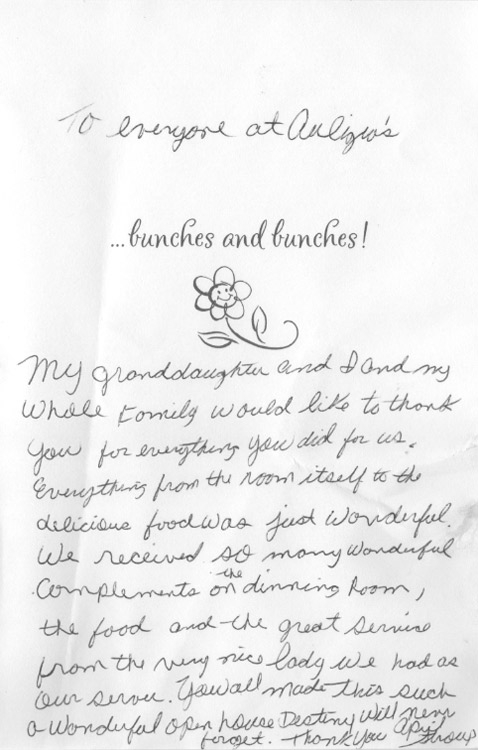 To everyone at Aulizio's
...bunches and bunches!
My granddaughter and I and my
Whole Family would like to thank
You for everything you did for us.
Everything from the room itself to the
delicious food was just wonderful.
We received so many wonderful
Complements on the dinning Room,
the food and the great service
from the very nice lady we had as
our server. You all made this such
a wonderful open house Destiny will never
forget. Thank you April